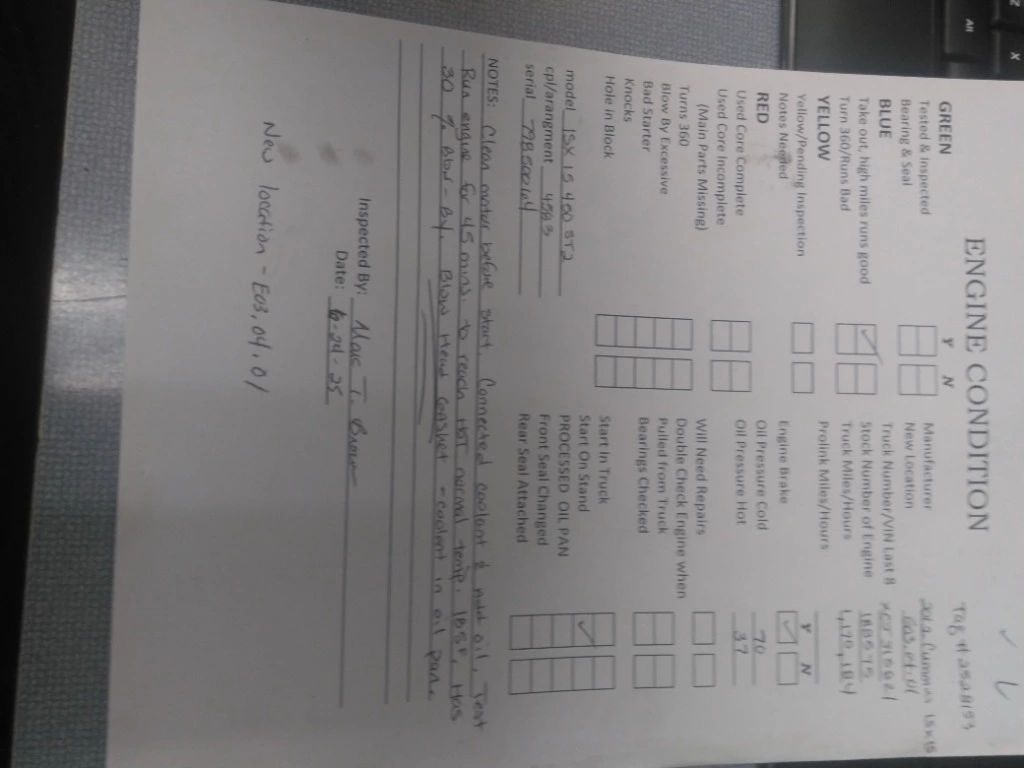 Tag # 2528193
ENGINE CONDITION
GREEN
Tested & Inspected
Bearing & Seal
BLUE
Take out, high miles runs good
Turn 360/Runs Bad
YELLOW
Yellow/Pending Inspection
Notes Needed
RED
Used Core Complete
Used Core Incomplete
(Main Parts Missing)
Turns 360
Blow By Excessive
Bad Starter
Knocks
Hole in Block
Y N
Manufacturer Cummins ISX15
New Location E03.04.01
Truck Number/VIN Last 8
Stock Number of Engine
Truck Miles/Hours
Prolink Miles/Hours
Y N
Engine Brake
Oil Pressure Cold 70
Oil Pressure Hot 37
Will Need Repairs
Double Check Engine when
Pulled from Truck
Bearings Checked
Start In Truck
Start On Stand
PROCESSED OIL PAN
Front Seal Changed
Rear Seal Attached
model ISX 15 450 ST2
cpl/arrangment
serial
NOTES: Clean motor before start. Connected coolant & add oil. Test
Run engine for 45 min. to reach HOT normal temp. 185F, Has
30 % Blow-By. Blown Head Gasket - coolent in oil pan.
Inspected By:
Date: 6-24-25
New location - E03.04.01